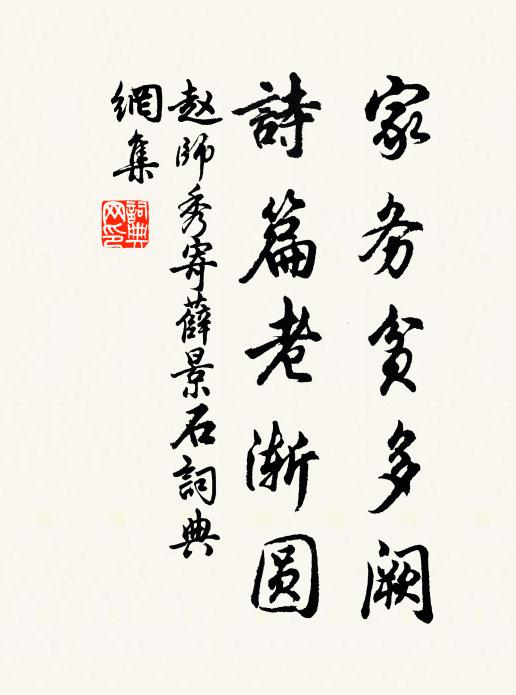 家务贫多阙
詩篇老渐圆
赵師秀寄薛景石詞典
網集
詞典
网印